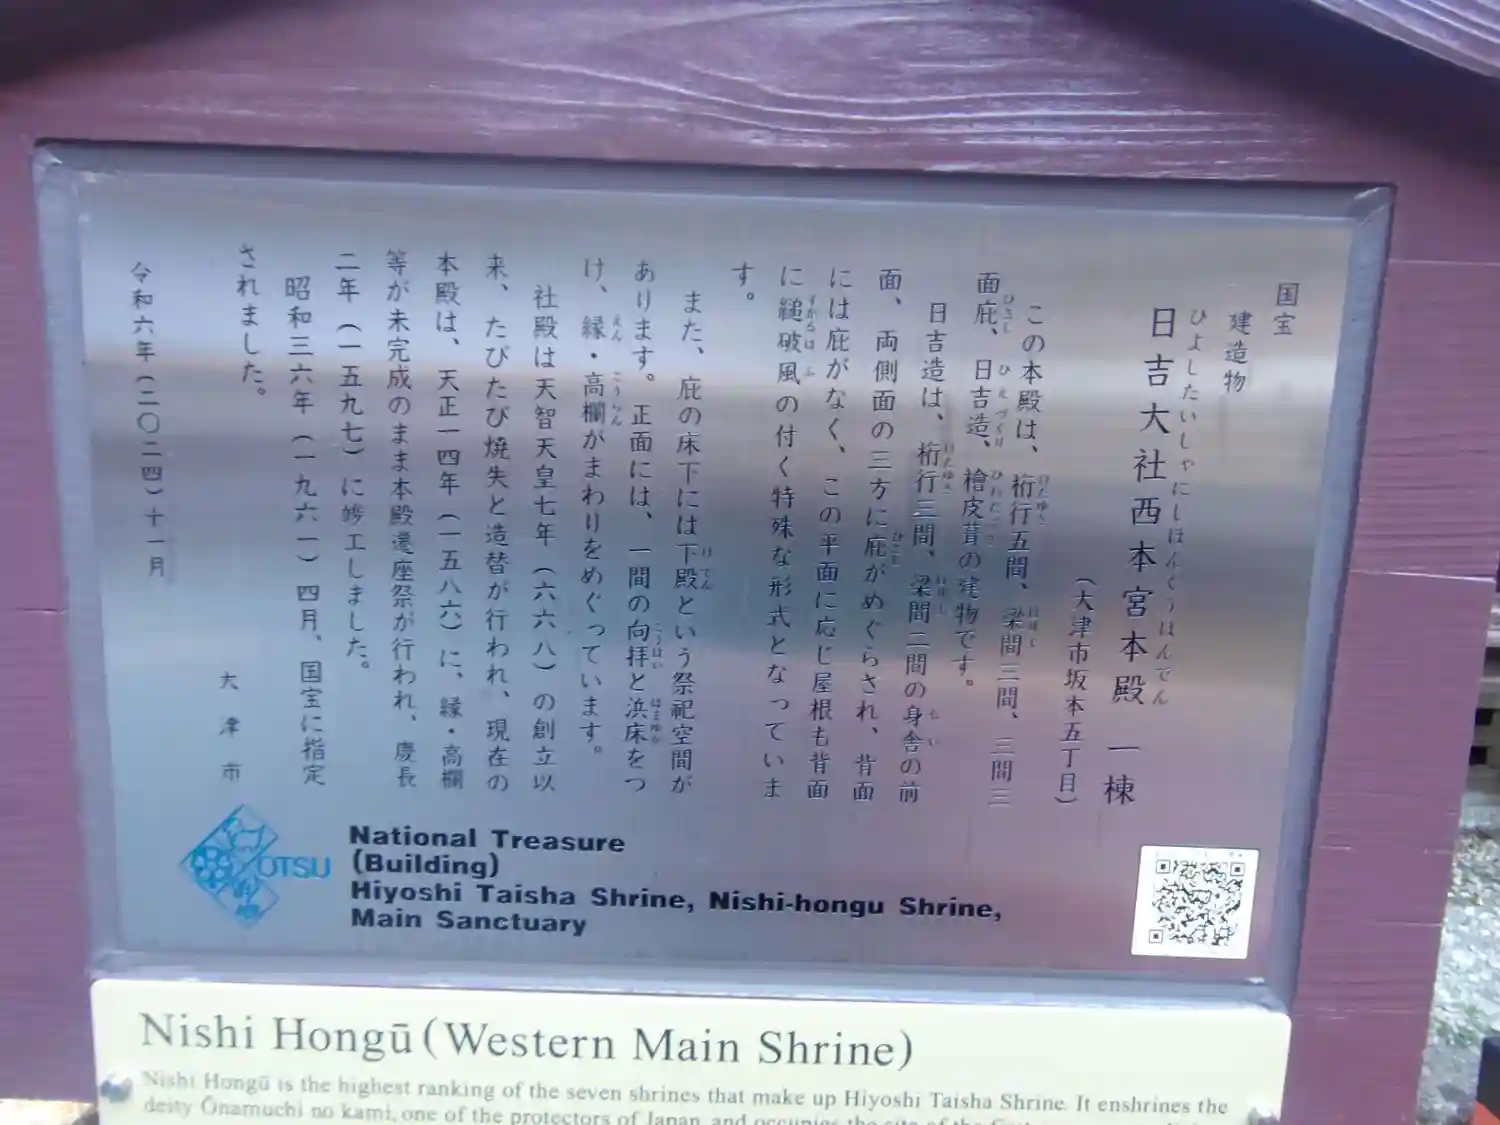 国宝
建造物
ひよしたいしゃにしほんぐうほんでん
日吉大社西本宮本殿 一棟
(大津市坂本五丁目)
この本殿は、桁行五間、梁間三間、三間三
面庇、日吉造、檜皮葺の建物です。
日吉造は、桁行三間、梁間二間の身舎の前
面、両側面の三方に庇がめぐらされ、背面
には庇がなく、この平面に応じ屋根も背面
に縋破風の付く特殊な形式となっていま
す。
また、庇の床下には下殿という祭祀空間が
あります。正面には、一間の向拝と浜床をつ
け、縁・高欄がまわりをめぐっています。
社殿は天智天皇七年(六六八)の創立以
来、たびたび焼失と造替が行われ、現在の
本殿は、天正一四年(一五八六)に、縁・高欄
等が未完成のまま本殿遷座祭が行われ、慶長
二年(一五九七)に竣工しました。
昭和三六年(一九六一)四月、国宝に指定
されました。
大津市
令和六年(二〇二四)十一月
OTSU
National Treasure
(Building)
Hiyoshi Taisha Shrine, Nishi-hongu Shrine,
Main Sanctuary
Nishi Hongū (Western Main Shrine)
Nishi Hongū is the highest ranking of the seven shrines that make up Hiyoshi Taisha Shrine. It enshrines the
deity Ōnamuchi no kami, one of the protectors of Japan, and occupies the site of the